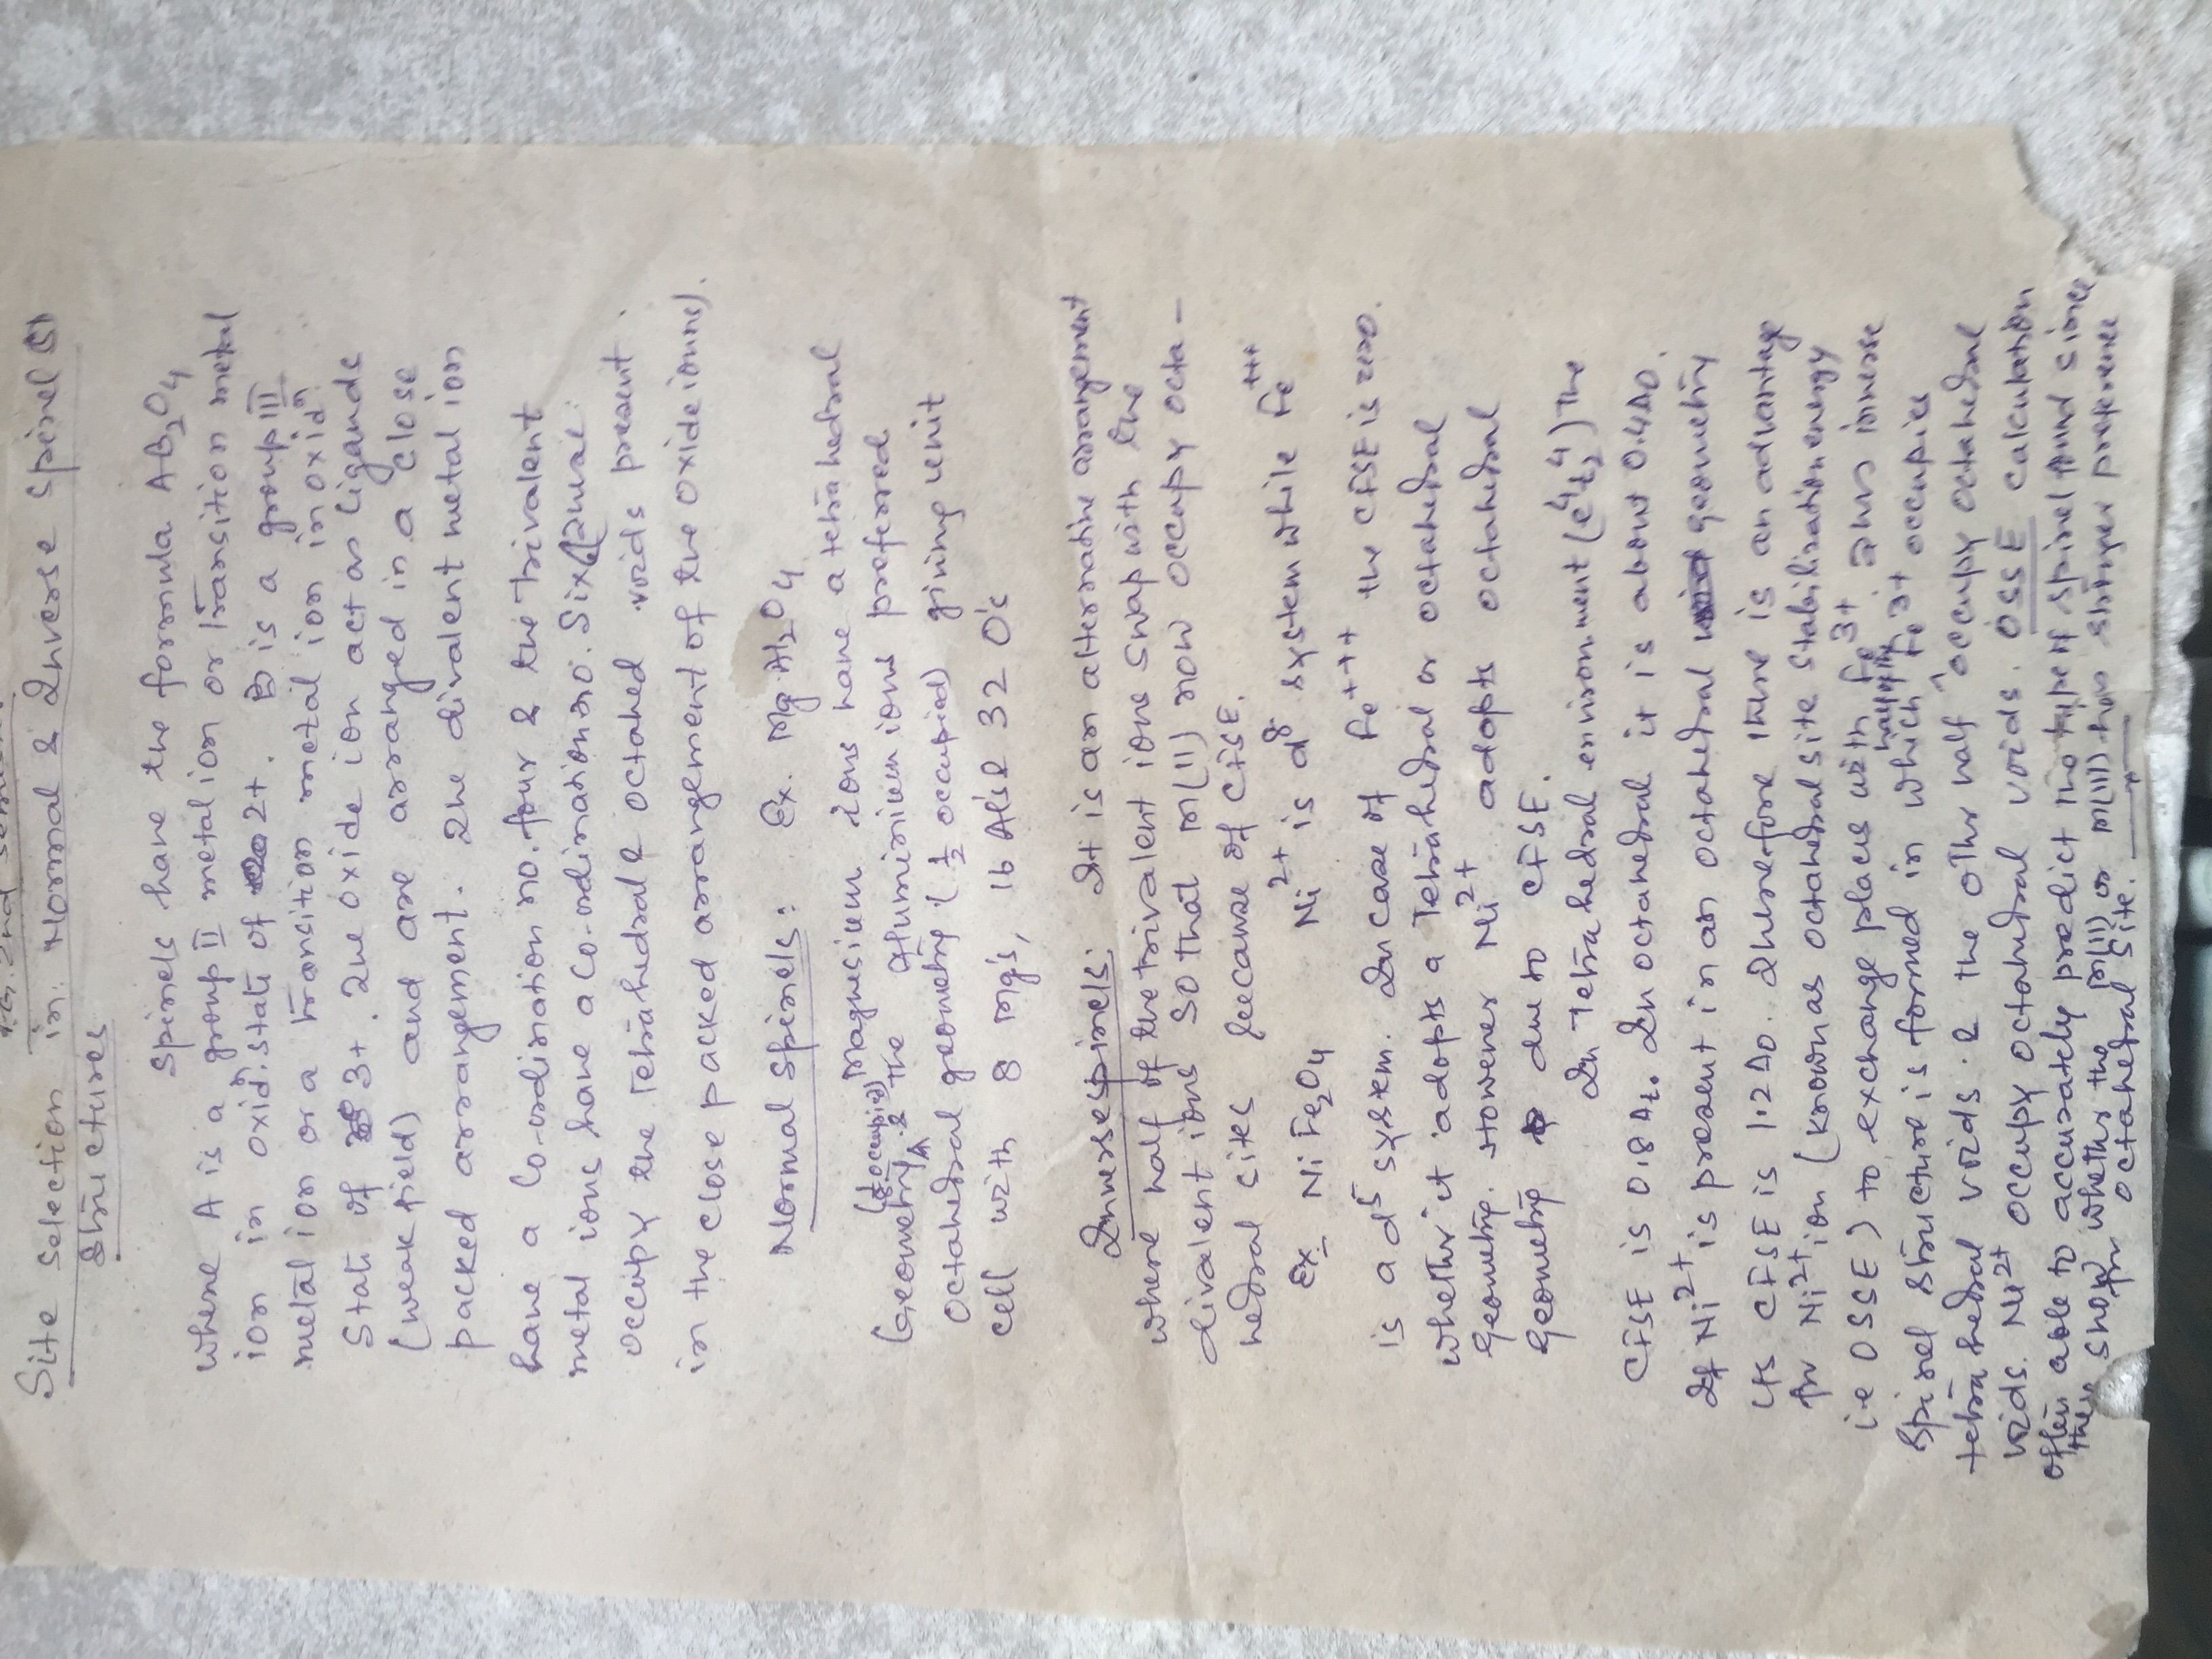 Site selection in Normal & Inverse Spinel(s)
Structures
Spinels have the formula AB₂O₄
where A is a group II metal ion or transition metal
ion in oxidⁿ. state of 2+. B is a group III
metal ion or a transition metal ion in oxidⁿ
State of 3+. The oxide ion act as ligands
(weak field) and are arranged in a close
packed arrangement. The divalent metal ion
have a Co-ordination no. four & the trivalent
metal ions have a Co-ordination no. Six
occupy the Tetrahedral & octahed voids present.
in the close packed arrangement of the oxide ions).
Normal Spinels: Ex. MgAl₂O₄
Magnesium ions have a tetrahedral
Geometry (⅛ occupied) & the Aluminium ions prefered
Octahedral geometry (½ occupied) giving unit
cell with 8 Mg's, 16 Al's & 32 O's
Inverse spinels: It is an alternative arrangement
where half of the trivalent ions swap with the
divalent ions so that M(II) now occupy octa-
hedral sites because of CFSE.
Ex- NiFe₂O₄ Ni²⁺ is d⁸ system while Fe⁺⁺⁺
is a d⁵ system. In case of Fe⁺⁺⁺ the CFSE is zero.
whether it adopts a Tetrahedral or octahedral
Geometry. However Ni²⁺ adopts octahedral
Geometry due to CFSE.
In Tetrahedral environment (e⁴t₂⁴) The
CFSE is 0.8Δt. In octahedral it is about 0.4Δo.
If Ni²⁺ is present in an octahedral geometry
its CFSE is 1.2Δo. Therefore there is an advantage
for Ni²⁺ ion (known as octahedral site stabilisation energy
i.e OSSE) to exchange places with Fe³⁺ Thus inverse
Spinel structure is formed in which half the Fe³⁺ occupies
tetrahedral voids. & the other half occupy octahedral
voids. Ni²⁺ occupy octahedral voids. OSSE calculation
often able to accurately predict the type of spinel found since
they show whether the M(II) or M(III) has stronger preference
for octahedral site.